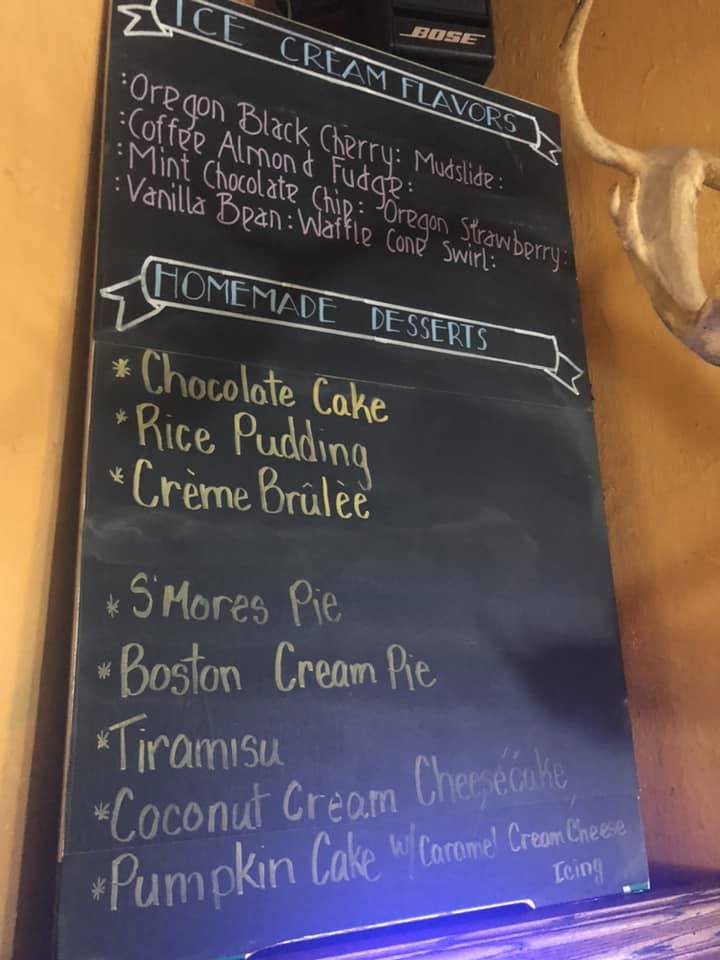 BOSE
ICE CREAM FLAVORS
:Oregon Black Cherry: Mudslide:
:Coffee Almond Fudge:
:Mint Chocolate Chip: Oregon Strawberry:
:Vanilla Bean: Waffle Cone Swirl:
HOMEMADE DESSERTS
* Chocolate Cake
* Rice Pudding
* Crème Brûlèe
* S'Mores Pie
* Boston Cream Pie
* Tiramisu
* Coconut Cream Cheesecake
* Pumpkin Cake w/ Caramel Cream Cheese
Icing